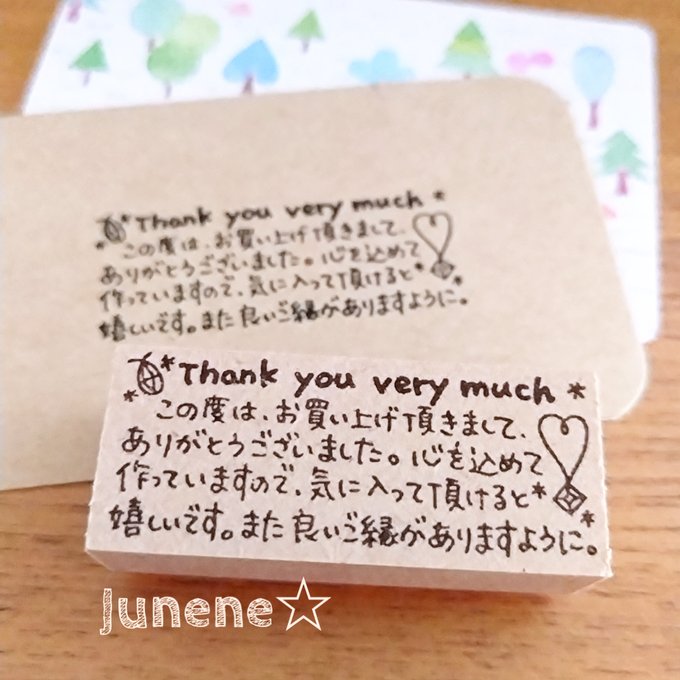 *Thank you very much*
この度は、お買い上げ頂きまして、
ありがとうございました。心を込めて
作っていますので、気に入って頂けると
嬉しいです。また良いご縁がありますように。
*Thank you very much*
この度は、お買い上げ頂きまして、
ありがとうございました。心を込めて
作っていますので、気に入って頂けると
嬉しいです。また良いご縁がありますように。
Junene☆